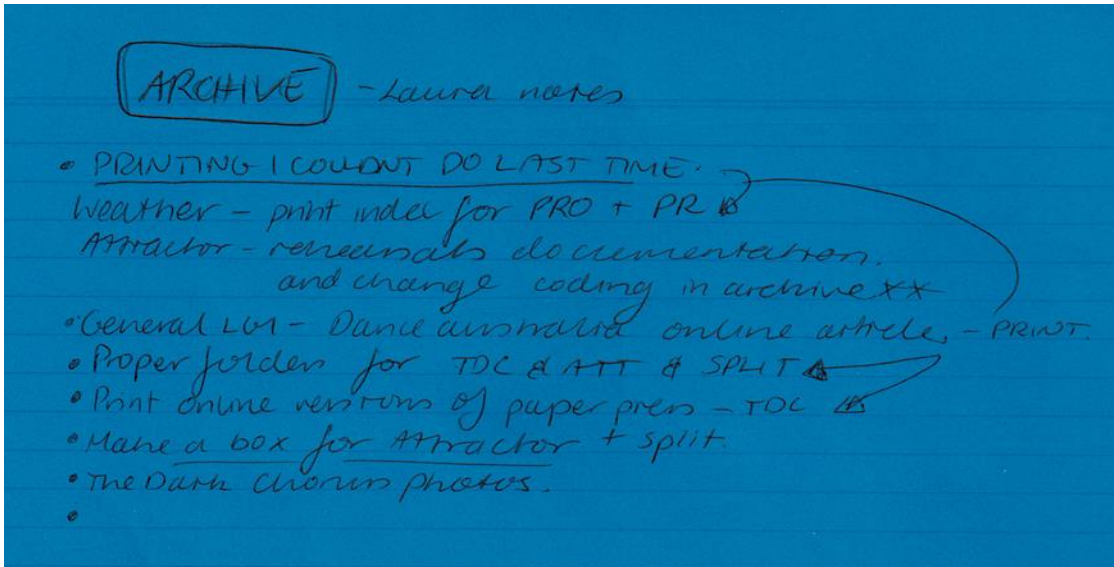 ARCHIVE - Laura notes
• PRINTING I COULDNT DO LAST TIME.
Weather - print index for PRO + PR
Attractor - rehearsals documentation.
and change coding in archive **
• General LGI - Dance australia online article. - PRINT.
• Proper folders for TDC & ATT & SPLIT
• Print online versions of paper press - TDC
• Make a box for Attractor + split.
• The Dark Chorus photos.
•